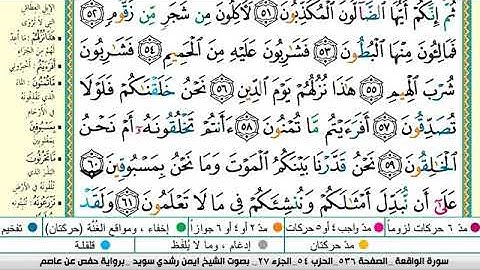 ثُمَّ إِنَّكُمْ أَيُّهَا ٱلضَّآلُّونَ ٱلْمُكَذِّبُونَ ٥١ لَءَاكِلُونَ مِن شَجَرٍ مِّن زَقُّومٍ ٥٢
فَمَالِـُٔونَ مِنْهَا ٱلْبُطُونَ ٥٣ فَشَٰرِبُونَ عَلَيْهِ مِنَ ٱلْحَمِيمِ ٥٤ فَشَٰرِبُونَ
شُرْبَ ٱلْهِيمِ ٥٥ هَٰذَا نُزُلُهُمْ يَوْمَ ٱلدِّينِ ٥٦ نَحْنُ خَلَقْنَٰكُمْ فَلَوْلَا
تُصَدِّقُونَ ٥٧ أَفَرَءَيْتُم مَّا تُمْنُونَ ٥٨ ءَأَنتُمْ تَخْلُقُونَهُۥٓ أَمْ نَحْنُ
ٱلْخَٰلِقُونَ ٥٩ نَحْنُ قَدَّرْنَا بَيْنَكُمُ ٱلْمَوْتَ وَمَا نَحْنُ بِمَسْبُوقِينَ ٦٠
عَلَىٰٓ أَن نُّبَدِّلَ أَمْثَٰلَكُمْ وَنُنشِئَكُمْ فِى مَا لَا تَعْلَمُونَ ٦١ وَلَقَدْ
الإبل العطاش
نُزُلُهُمْ
أَفَرَءَيْتُم
تُمْنُونَ
في الأرحام
بِمَسْبُوقِينَ
بمغلوبين
مَّا تَحْرُثُونَ
في الأرض
مدّ ٦ حركات لزوماً
مدّ واجب ٤ أو ٥ حركات
مدّ ٢ أو ٤ أو ٦ جوازاً
إخفاء ، ومواقع الغُنَّة (حركتان)
تفخيم
مدّ حركتان
إدغام ، وما لا يُلفَظ
قلقلة
سورة الواقعة _ الصفحة ٥٣٦ _ الحزب ٥٤ _ الجزء ٢٧ _ بصوت الشيخ ايمن رشدي سويد _ برواية حفص عن عاصم